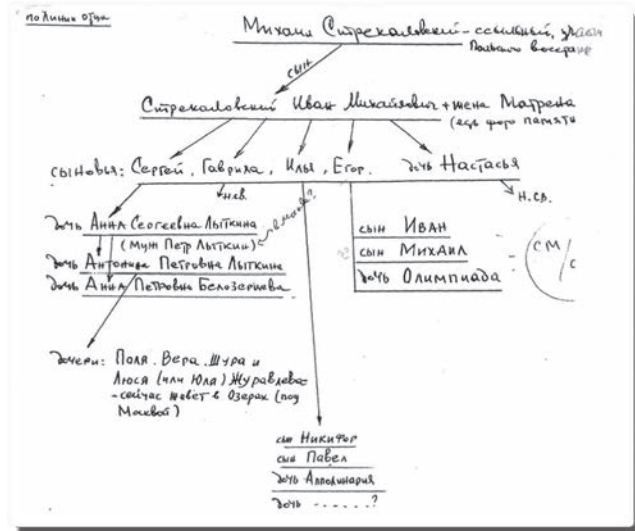 по линии отца
Михаил Стрекаловский - ссыльный, участ
Польского восстани
сын
Стрекаловский Иван Михайлович + жена Матрена
(есть фото памяти
сыновья: Сергей, Гаврила, Илья, Егор. дочь Настасья
н.св.
н.св.
дочь Анна Сергеевна Лыткина
(муж Петр Лыткин)
дочь Антонина Петровна Лыткина
дочь Анна Петровна Белозерцева
сын Иван
сын Михаил
дочь Олимпиада
см/
с
дочери: Поля, Вера, Шура и
Люся (или Юля) Журавлева-
- сейчас живёт в Озерах (под
Москвой)
сын Никифор
сын Павел
дочь Апполинария
дочь - - - - - - ?